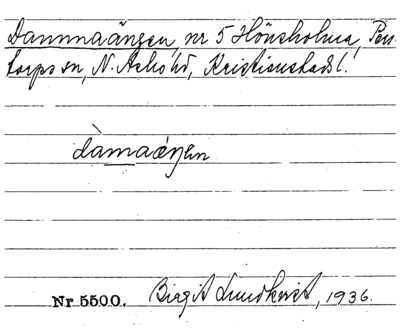 Dammaängen, nr 5 Hönsholma, Pers-
torps sn, N. Åsbo hd, Kristianstads l.
dàmaäŋen
Nr 5500. Birgit Lundkvist, 1936.